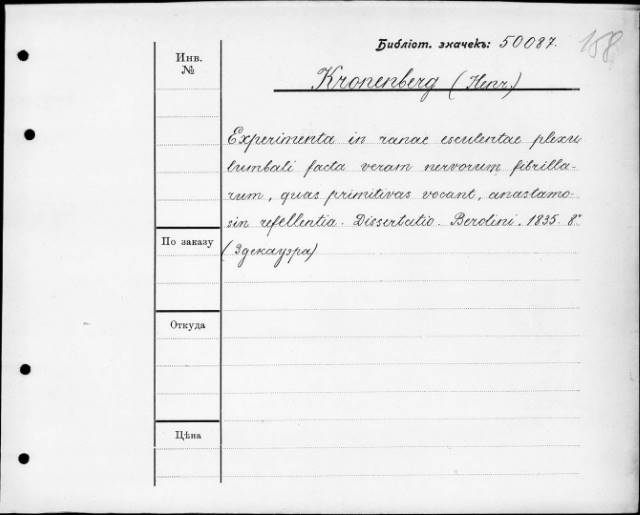 Библіот. значекъ: 50087.
158
Инв.
№
Kronenberg (Henr.)
Experimenta in ranae esculentae plexu
lumbali facta veram nervorum fibrilla-
rum, quas primitivas vocant, anastamo-
sin refellentia. Dissertatio. Berolini. 1835. 8°
(Эдекауэра)
По заказу
Откуда
Цѣна